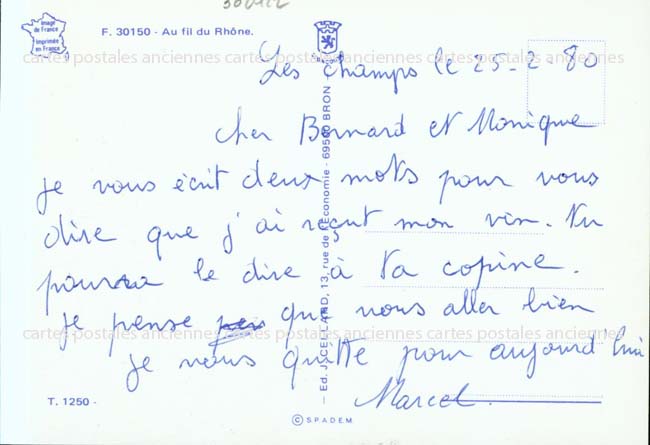 30150
Image de France
Imprimée en France
F. 30150 - Au fil du Rhône.
cartes postales anciennes cartes postales anciennes cartes postales anciennes
Les champs le 25-2-80
cher Bernard et Monique
je vous écrit deux mots pour vous
dire que j'ai reçut mon vin. tu
pourra le dire à ta copine.
je pense que vous aller bien
cartes postales anciennes cartes postales anciennes cartes postales anciennes
je vous quitte pour aujourd'hui
Marcel.
T. 1250 -
— Ed. J. CELLARD, 13, rue de l'Economie - 69500 BRON
© SPADEM